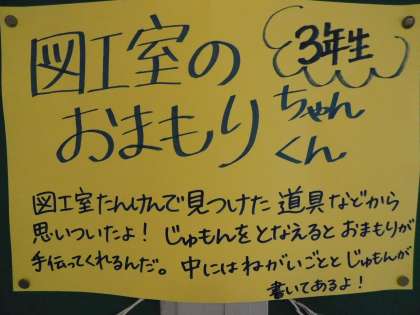 図工室の
3年生
おまもり
ちゃん
くん
図工室たんけんで見つけた道具などから
思いついたよ！じゅもんをとなえるとおまもりが
手伝ってくれるんだ。中にはねがいごととじゅもんが
書いてあるよ！